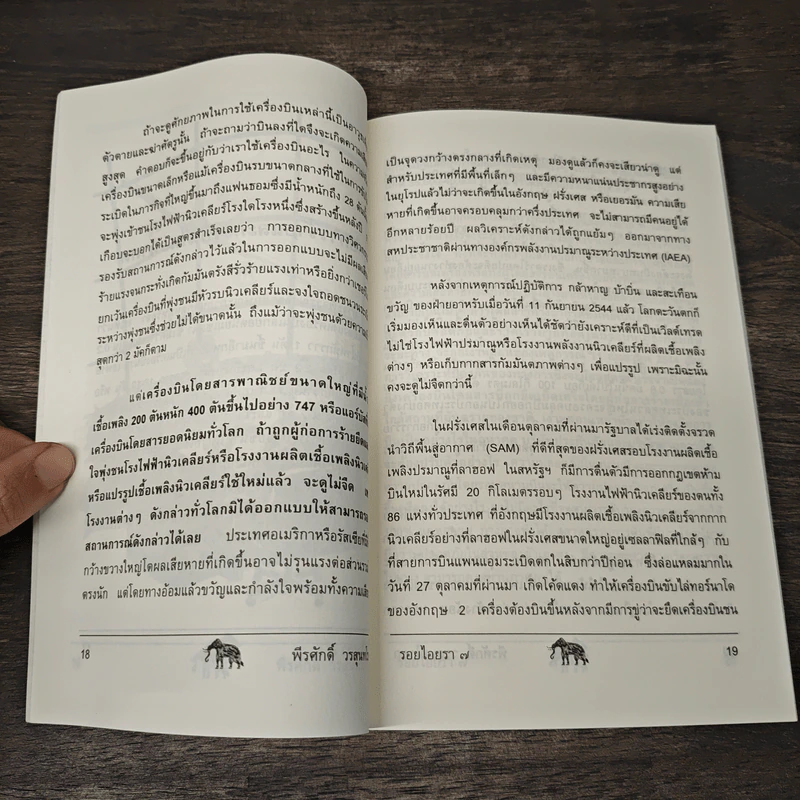 ถ้าจะดูศักยภาพในการใช้เครื่องบินเหล่านี้เป็นอาวุธ
ตัวตายและฆ่าศัตรูนั้น ถ้าจะถามว่าบินลงที่ใดจึงจะเกิดความ
สูงสุด คำตอบก็จะขึ้นอยู่กับว่าเราใช้เครื่องบินอะไร ในความ
เครื่องบินขนาดเล็กหรือแม้เครื่องบินรบขนาดกลางที่ใช้ในการ
ระเบิดในภารกิจที่ใหญ่ขึ้นมาถึงแฟนธอมซึ่งมีน้ำหนักถึง 28 ตัน
จะพุ่งเข้าชนโรงไฟฟ้านิวเคลียร์โรงใดโรงหนึ่งซึ่งสร้างขึ้นหลังปี
เกือบจะบอกได้เป็นสูตรสำเร็จเลยว่า การออกแบบทางวิศวกรรม
รองรับสถานการณ์ดังกล่าวไว้แล้วในการออกแบบจะไม่มีผล
ร้ายแรงจนกระทั่งเกิดกัมมันตรังสีรั่วร้ายแรงเท่าหรือยิ่งกว่า
ยกเว้นเครื่องบินที่พุ่งชนมีหัวรบนิวเคลียร์และจงใจถอดชนวน
ระหว่างพุ่งชนซึ่งช่วยไม่ได้ขนาดนั้น ถึงแม้ว่าจะพุ่งชนด้วยความ
สุดกว่า 2 มัคก็ตาม
แต่เครื่องบินโดยสารพาณิชย์ขนาดใหญ่ที่มี
เชื้อเพลิง 200 ตันหนัก 400 ตันขึ้นไปอย่าง 747 หรือแอร์บัส
เครื่องบินโดยสารยอดนิยมทั่วโลก ถ้าถูกผู้ก่อการร้ายยึด
ใจพุ่งชนโรงไฟฟ้านิวเคลียร์หรือโรงงานผลิตเชื้อเพลิงนิวเคลียร์
หรือแปรรูปเชื้อเพลิงนิวเคลียร์ใช้ใหม่แล้ว จะดูไม่จืด
โรงงานต่างๆ ดังกล่าวทั่วโลกมิได้ออกแบบให้สามารถ
สถานการณ์ดังกล่าวได้เลย ประเทศอเมริกาหรือรัสเซียที่
กว้างขวางใหญ่โตผลเสียหายที่เกิดขึ้นอาจไม่รุนแรงต่อส่วน
ตรงนัก แต่โดยทางอ้อมแล้วขวัญและกำลังใจพร้อมทั้งความ
18 พีรศักดิ์ วรสุนทโรสถ
เป็นจุดวงกว้างตรงกลางที่เกิดเหตุ มองดูแล้วก็คงจะเสียวน่าดู แต่
สำหรับประเทศที่มีพื้นที่เล็กๆ และมีความหนาแน่นประชากรสูงอย่าง
ในยุโรปแล้วไม่ว่าจะเกิดขึ้นในอังกฤษ ฝรั่งเศส หรือเยอรมัน ความเสีย
หายที่เกิดขึ้นอาจครอบคลุมกว่าครึ่งประเทศ จะไม่สามารถมีคนอยู่ได้
อีกหลายร้อยปี ผลวิเคราะห์ดังกล่าวได้ถูกแย้มๆ ออกมาจากทาง
สหประชาชาติผ่านทางองค์กรพลังงานปรมาณูระหว่างประเทศ (IAEA)
หลังจากเหตุการณ์ปฏิบัติการ กล้าหาญ บ้าบิ่น และสะเทือน
ขวัญ ของฝ่ายอาหรับเมื่อวันที่ 11 กันยายน 2544 แล้ว โลกตะวันตกก็
เริ่มมองเห็นและตื่นตัวอย่างเห็นได้ชัดว่ายังเคราะห์ดีที่เป็นเวิลด์เทรด
ไม่ใช่โรงไฟฟ้าปรมาณูหรือโรงงานพลังงานนิวเคลียร์ที่ผลิตเชื้อเพลิง
ต่างๆ หรือเก็บกากสารกัมมันตภาพต่างๆ เพื่อแปรรูป เพราะมิฉะนั้น
คงจะดูไม่จืดกว่านี้
ในฝรั่งเศสในเดือนตุลาคมที่ผ่านมารัฐบาลได้เร่งติดตั้งจรวด
นำวิถีพื้นสู่อากาศ (SAM) ที่ดีที่สุดของฝรั่งเศสรอบโรงงานผลิตเชื้อ
เพลิงปรมาณูที่ลาฮอฟ ในสหรัฐฯ ก็มีการตื่นตัวมีการออกกฎเขตห้าม
บินใหม่ในรัศมี 20 กิโลเมตรรอบๆ โรงงานไฟฟ้านิวเคลียร์ของตนทั้ง
86 แห่งทั่วประเทศ ที่อังกฤษมีโรงงานผลิตเชื้อเพลิงนิวเคลียร์จากกาก
นิวเคลียร์อย่างที่ลาฮอฟในฝรั่งเศสขนาดใหญ่อยู่เซลลาฟิลที่ใกล้ๆ กับ
ที่สายการบินแพนแอมระเบิดตกในสิบกว่าปีก่อน ซึ่งล่อแหลมมากใน
วันที่ 27 ตุลาคมที่ผ่านมา เกิดโค้ดแดง ทำให้เครื่องบินขับไล่ทอร์นาโด
ของอังกฤษ 2 เครื่องต้องบินขึ้นหลังจากมีการขู่ว่าจะยึดเครื่องบินชน
รอยไอยรา ๗ 19